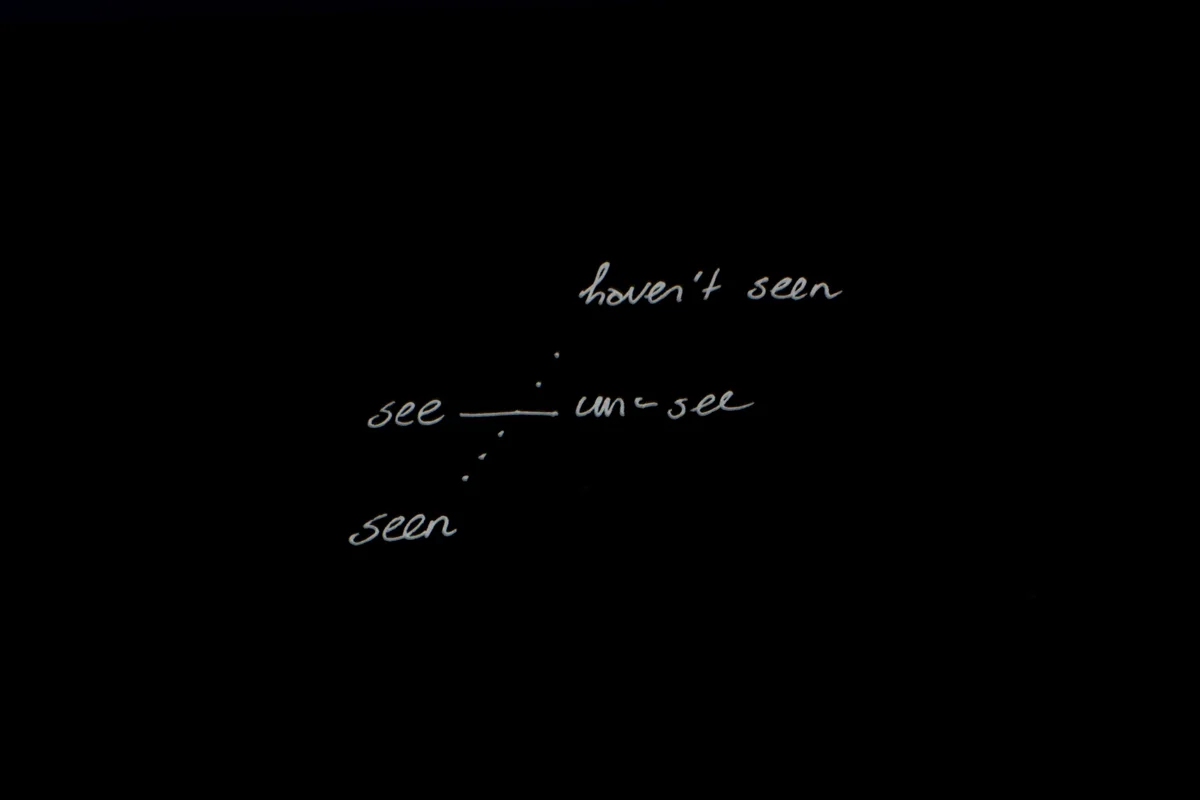 haven't seen
see — un-see
seen